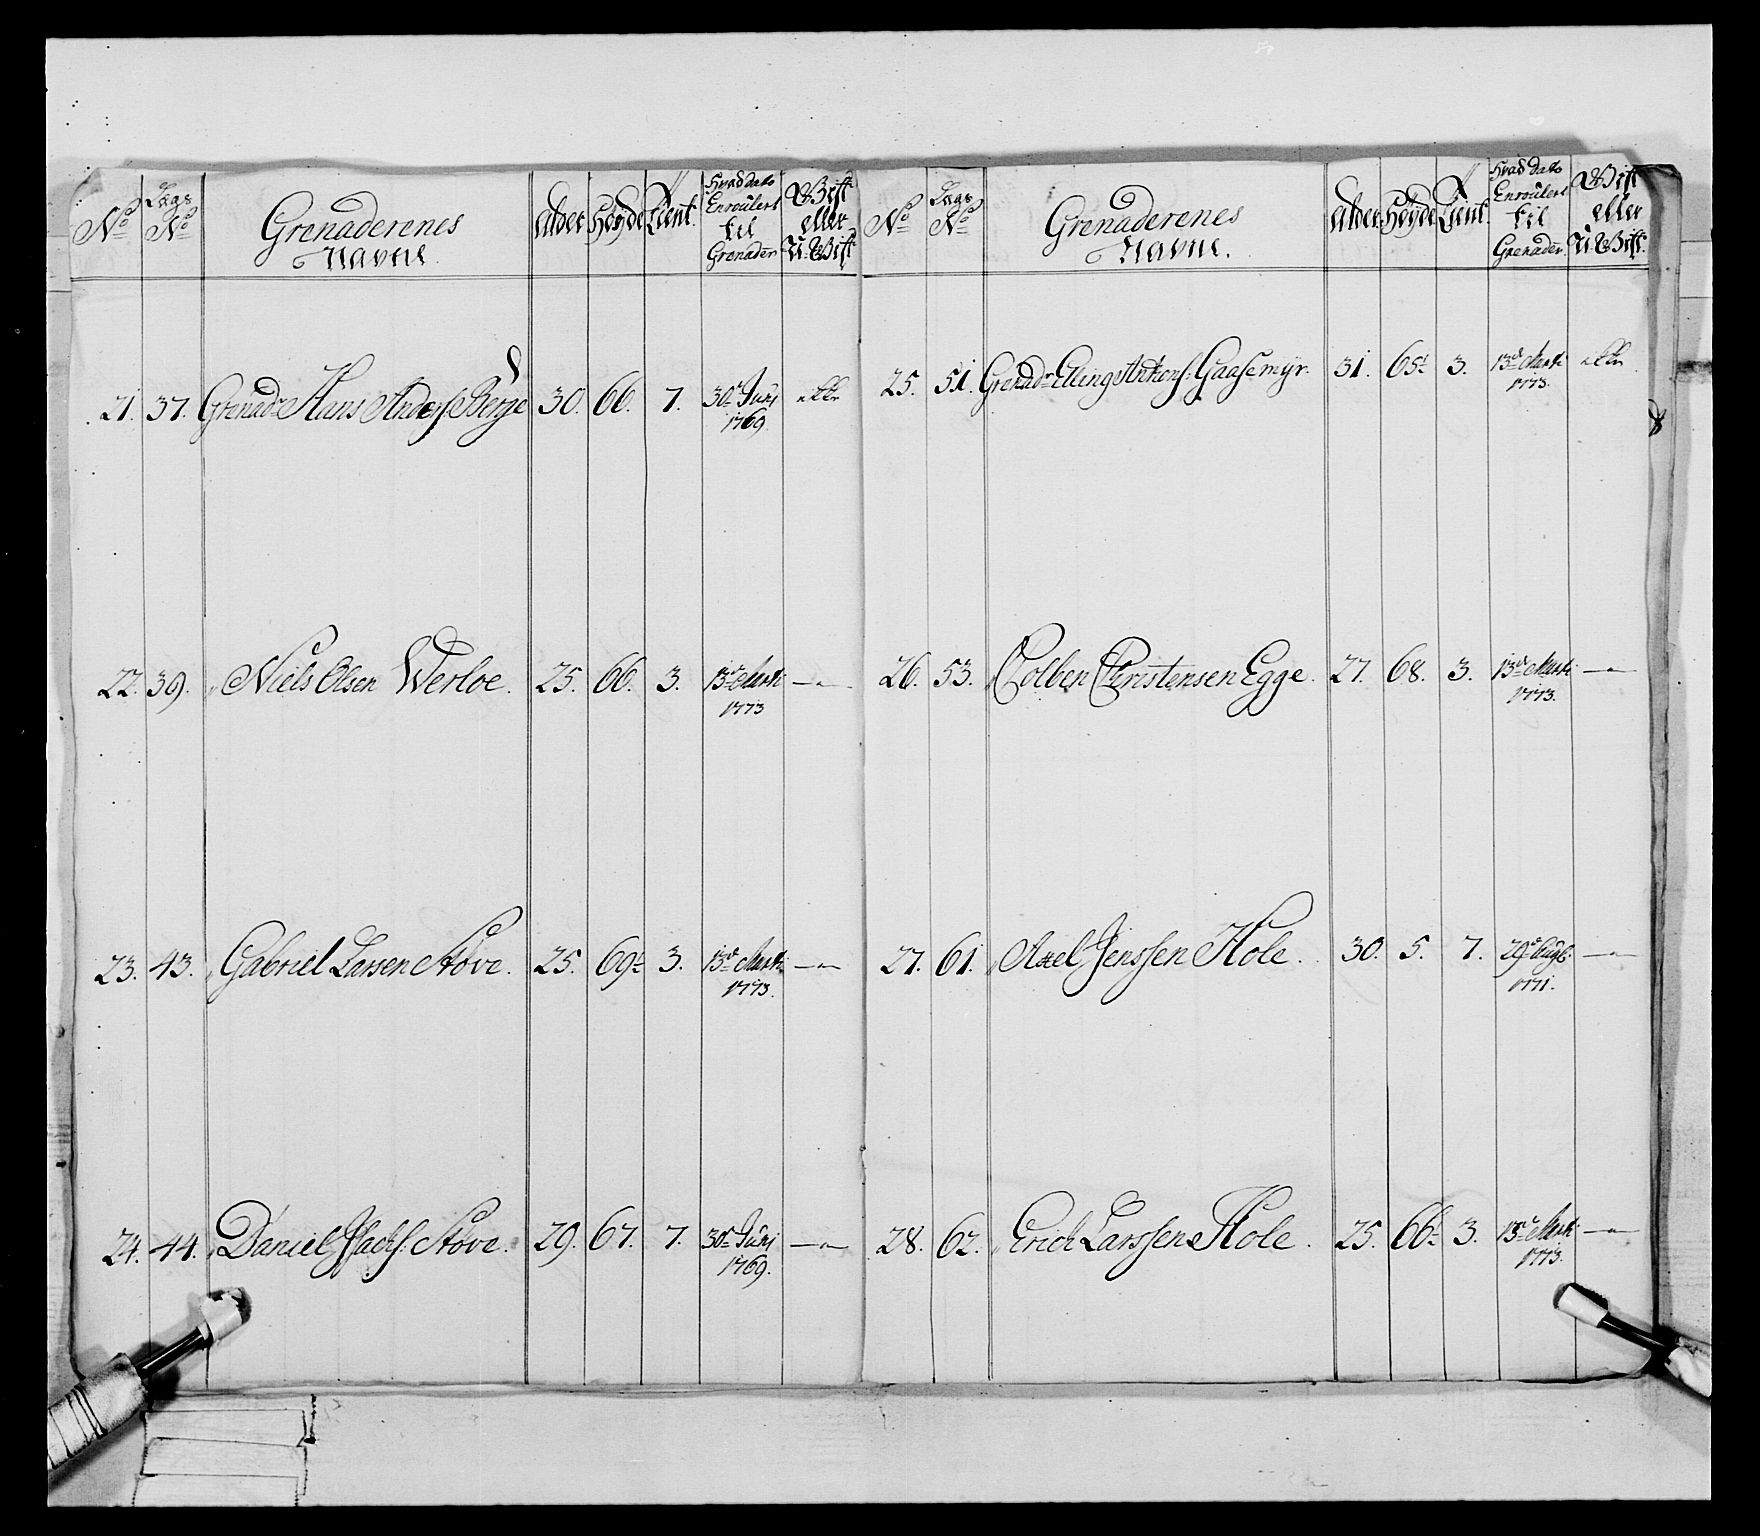 No | Lægs No | Grenaderenes Navne | Alder | Høyde | Tient | Hvad dato Enroulert til Grenader | Gift eller U-Gift
21. | 37. | Grenadr Hans Anders: Berge | 30. | 66. | 7. | 30t Junj 1769. | ikke
22. | 39. | " Niels Olsen Werloe. | 25. | 66. | 3. | 13de Marti 1773 | —"—
23. | 43. | " Gabriel Larsen Støve. | 25. | 69½ | 3. | 13de Marti 1773. | —"—
24. | 44. | " Daniel Jsachs: Støve. | 29. | 67. | 7. | 30t Junj 1769. | —"—
No | Lægs No | Grenaderenes Navne. | Alder | Høyde | Tient | Hvad dato Enroulert til Grenader. | Gift eller U-Gift.
25. | 51. | Grenadr Elling Antons: Gaasemyr. | 31. | 65½ | 3. | 13de Marti 1773. | ikke
26. | 53. | " Colben Christensen Egge. | 27. | 68. | 3. | 13de Marti 1773. | —"—
27. | 61. | " Axel Jenssen Hole. | 30. | 5. | 7. | 29de Augt: 1771. | —"—
28. | 62. | " Erich Larssen Hole. | 25. | 66½ | 3. | 13de Marti 1773. | —"—